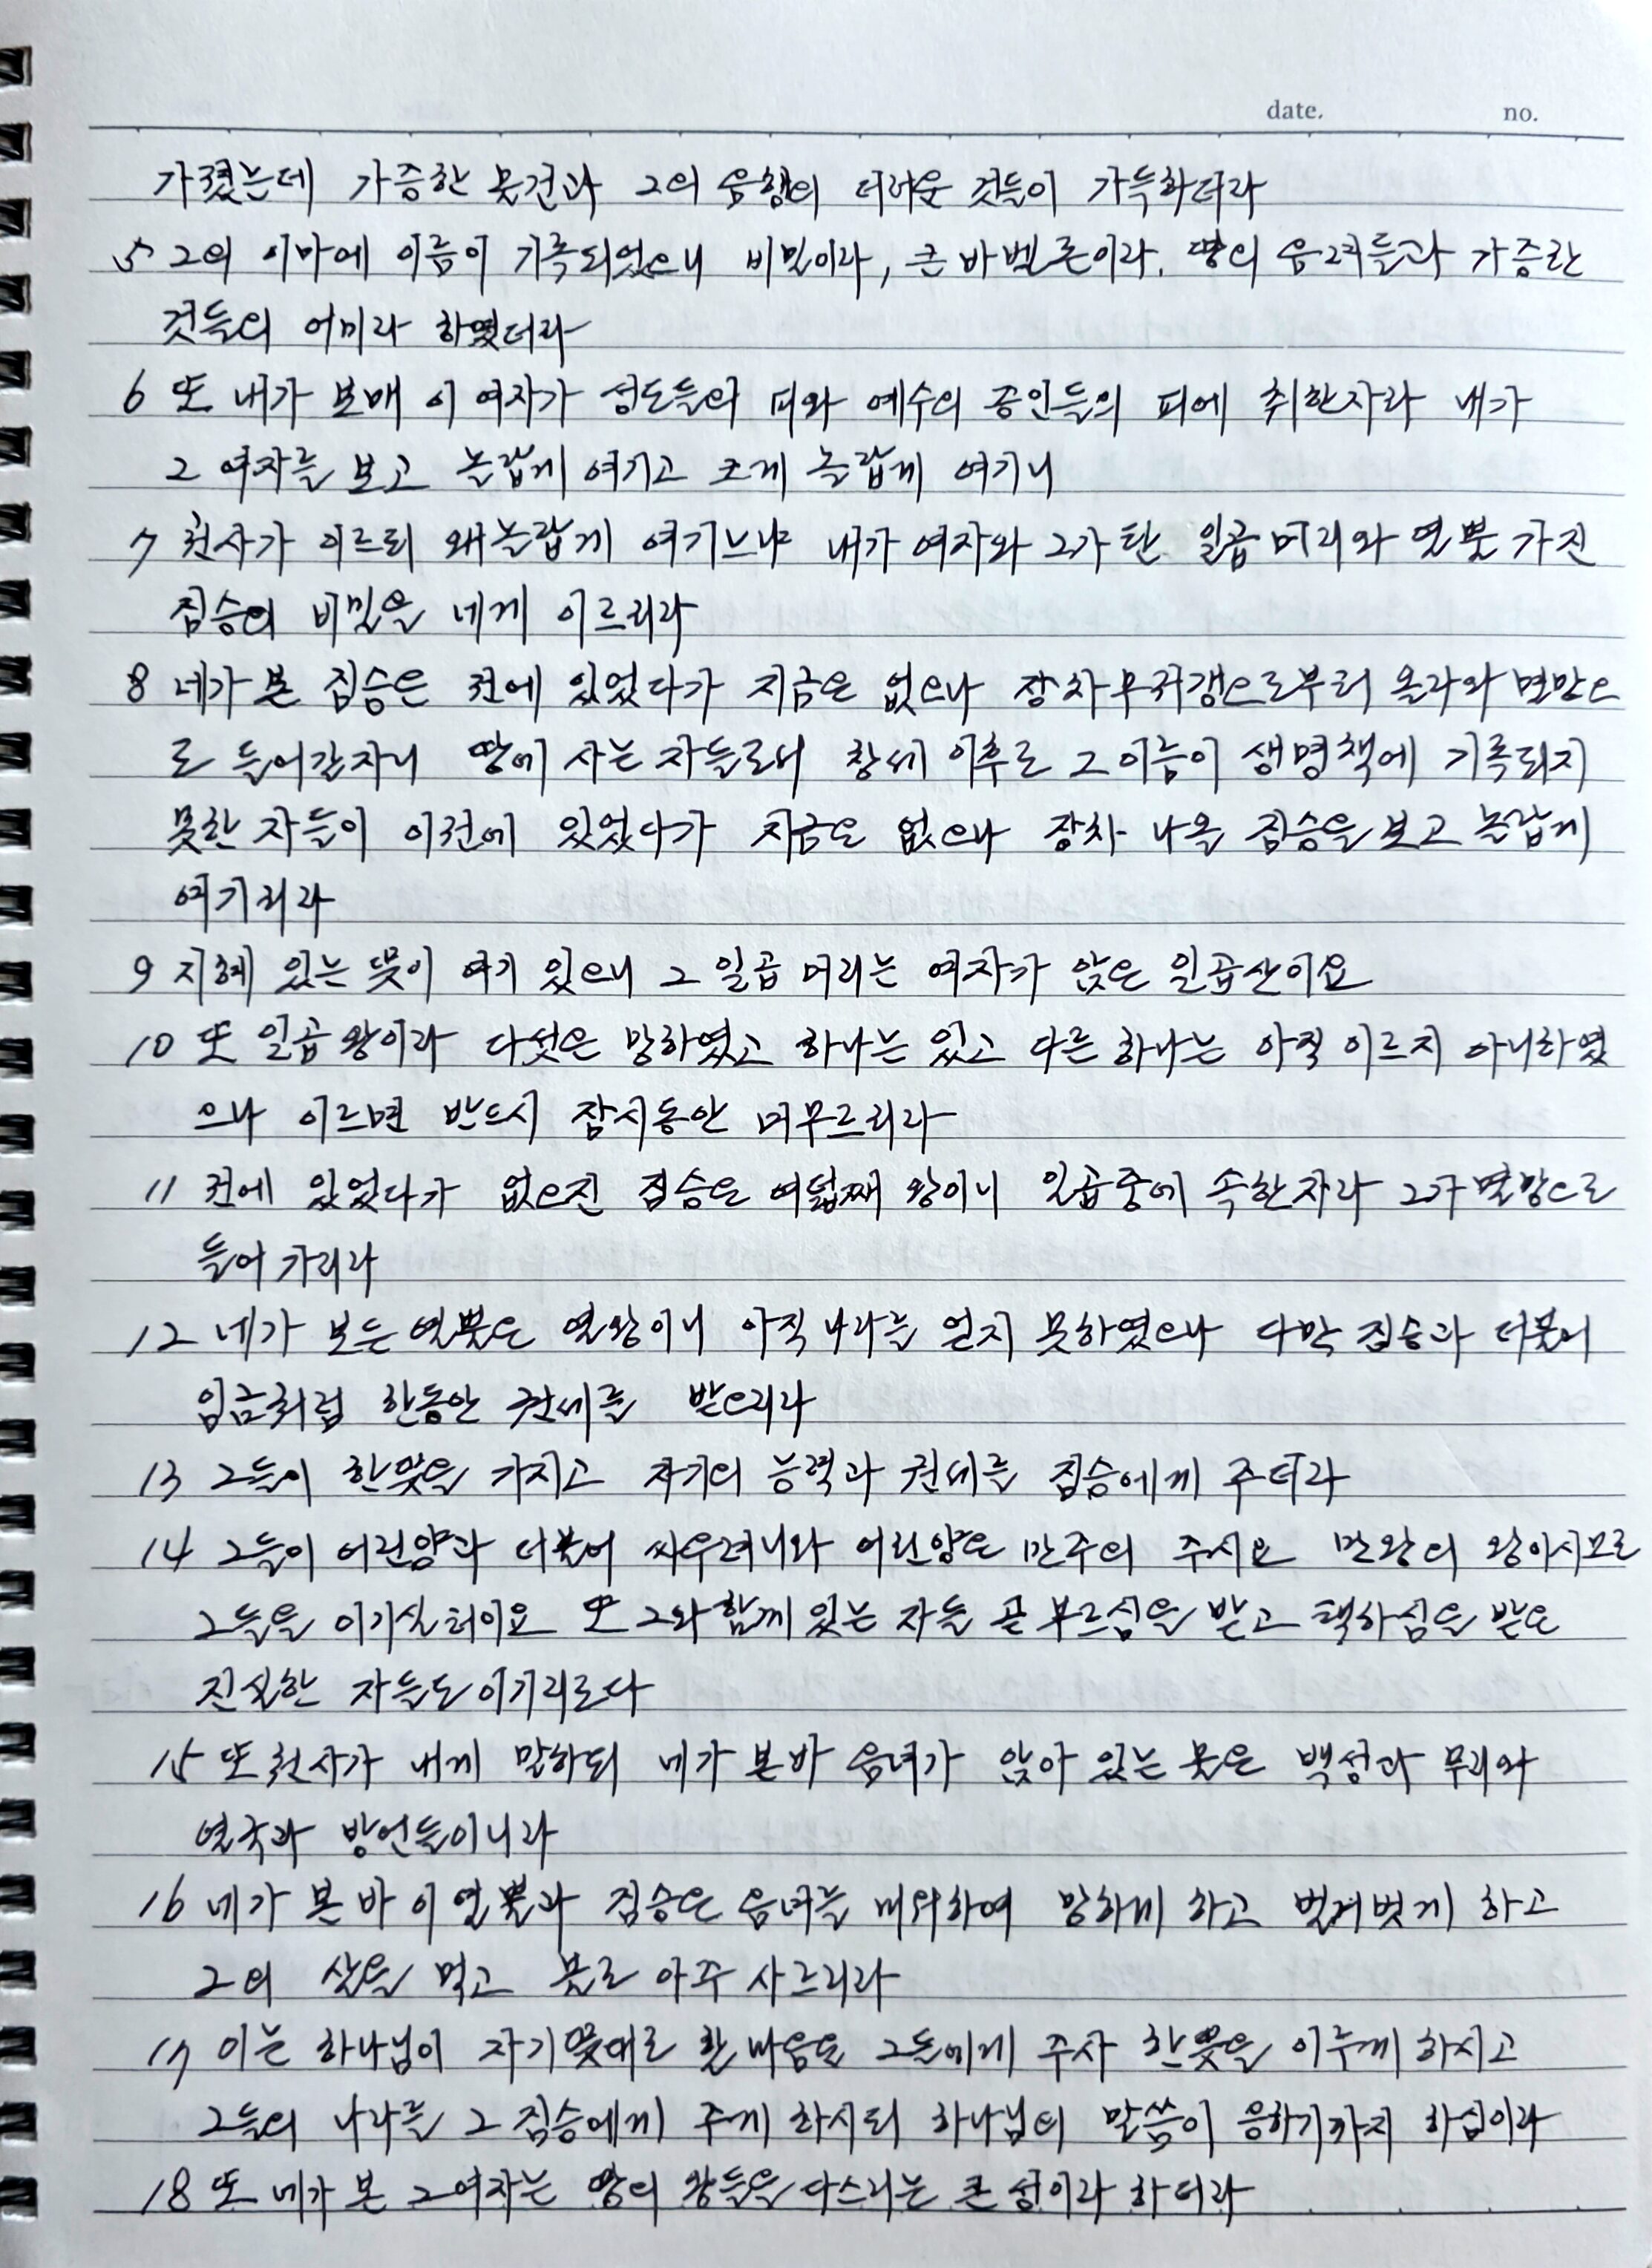 date. no.
가졌는데 가증한 물건과 그의 음행의 더러운 것들이 가득하더라
5 그의 이마에 이름이 기록되었으니 비밀이라, 큰 바벨론이라. 땅의 음녀들과 가증한
것들의 어미라 하였더라
6 또 내가 보매 이 여자가 성도들의 피와 예수의 증인들의 피에 취한지라 내가
그 여자를 보고 놀랍게 여기고 크게 놀랍게 여기니
7 천사가 이르되 왜 놀랍게 여기느냐 내가 여자와 그가 탄 일곱 머리와 열 뿔 가진
짐승의 비밀을 네게 이르리라
8 네가 본 짐승은 전에 있었다가 지금은 없으나 장차 무저갱으로부터 올라와 멸망으
로 들어갈자니 땅에 사는 자들로서 창세 이후로 그 이름이 생명책에 기록되지
못한 자들이 이전에 있었다가 지금은 없으나 장차 나올 짐승을 보고 놀랍게
여기리라
9 지혜 있는 뜻이 여기 있으니 그 일곱 머리는 여자가 앉은 일곱산이요
10 또 일곱 왕이라 다섯은 망하였고 하나는 있고 다른 하나는 아직 이르지 아니하였
으나 이르면 반드시 잠시동안 머무르리라
11 전에 있었다가 없으진 짐승은 여덟째 왕이니 일곱중에 속한자라 그가 멸망으로
들어 가리라
12 네가 보든 열뿔은 열왕이니 아직 나라를 얻지 못하였으나 다만 짐승과 더불어
임금처럼 한동안 권세를 받으리라
13 그들이 한뜻을 가지고 자기의 능력과 권세를 짐승에게 주더라
14 그들이 어린양과 더불어 싸우려니와 어린양은 만주의 주시요 만왕의 왕이시므로
그들을 이기실터이요 또 그와 함께 있는 자들 곧 부르심을 받고 택하심을 받은
진실한 자들도 이기리로다
15 또 천사가 내게 말하되 네가 본바 음녀가 앉아 있는 물은 백성과 무리와
열국과 방언들이니라
16 네가 본 바 이 열뿔과 짐승은 음녀를 미워하여 망하게 하고 벌거벗게 하고
그의 살을 먹고 불로 아주 사르리라
17 이는 하나님이 자기 뜻대로 할 마음을 그들에게 주사 한뜻을 이루게 하시고
그들의 나라를 그 짐승에게 주게 하시되 하나님의 말씀이 응하기까지 하심이라
18 또 네가 본 그 여자는 땅의 왕들을 다스리는 큰 성이라 하더라